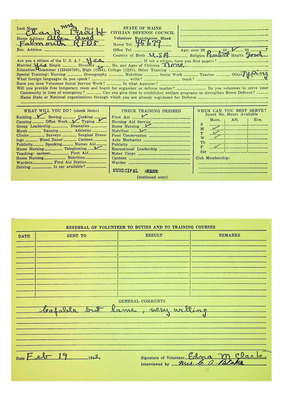 STATE OF MAINE
CIVILIAN DEFENSE COUNCIL
Last Name First
Volunteer Registration Blank
Clark Mrs Percy H
Home Address Allen Ave
Home Tel. 45679
Falmouth RFD 5
Office Tel.
Bus. Address
Country of Birth U.S.A. Religion Protest Health Good
Are you a citizen of the U. S. A.? Yes
If not a citizen, have you first papers?
Married Yes Single No. and Ages of Children None
Special Training: Nursing Stenography Nutrition Social Work Teacher Other Typing
What foreign languages do you speak? write? teach?
Have you done Volunteer Social Service Work? In what Agencies?
Will you provide free temporary room and board for organizer or defense teacher? Do you volunteer to serve your
Community in time of emergency? Can you give time to establish welfare programs to strengthen Home Defense?
State or National organizations through which you are already registered for Defense
WHAT WILL YOU DO? (check items)
Knitting Sewing Cooking
Canning Office Work Typing
Group Leadership Dramatics
Music Dancing Athletics
Clinics Surveys Surgical Dressings
Blood Donor Canteen
Publicity Speaking Nurses Aid
Home Nursing Telephoning
Teaching: sewing First Aid
Home Nursing Nutrition
Wardens First Aid Station
Driving Is car available?
CHECK TRAINING DESIRED
First Aid
Nursing Aid Service
Home Nursing
Nutrition
Food Conservation
Auto Mechanics
Publicity
Recreational Leadership
Motor Corps
Canteen
Warden
MUNICIPAL
(continued over)
WHEN CAN YOU BEST SERVE?
Insert No. Hours Available
Morn. Aft. Eve.
S
M
T
W
Th
F
Sat
Club Membership:
REFERRAL OF VOLUNTEER TO DUTIES AND TO TRAINING COURSES
DATE SENT TO RESULT REMARKS
GENERAL COMMENTS
Capable but lame, very willing
Date Feb 19 1942 Signature of Volunteer Edna M Clark
Interviewed by Mrs. C. A. Blake